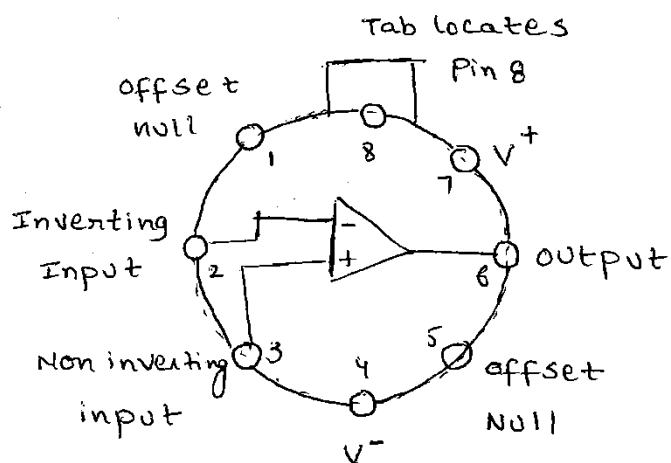 Tab locates
Pin 8
offset
null
1
8
7
V+
Inverting
Input
2
-
+
6
output
Non inverting
input
3
4
V-
5
offset
Null